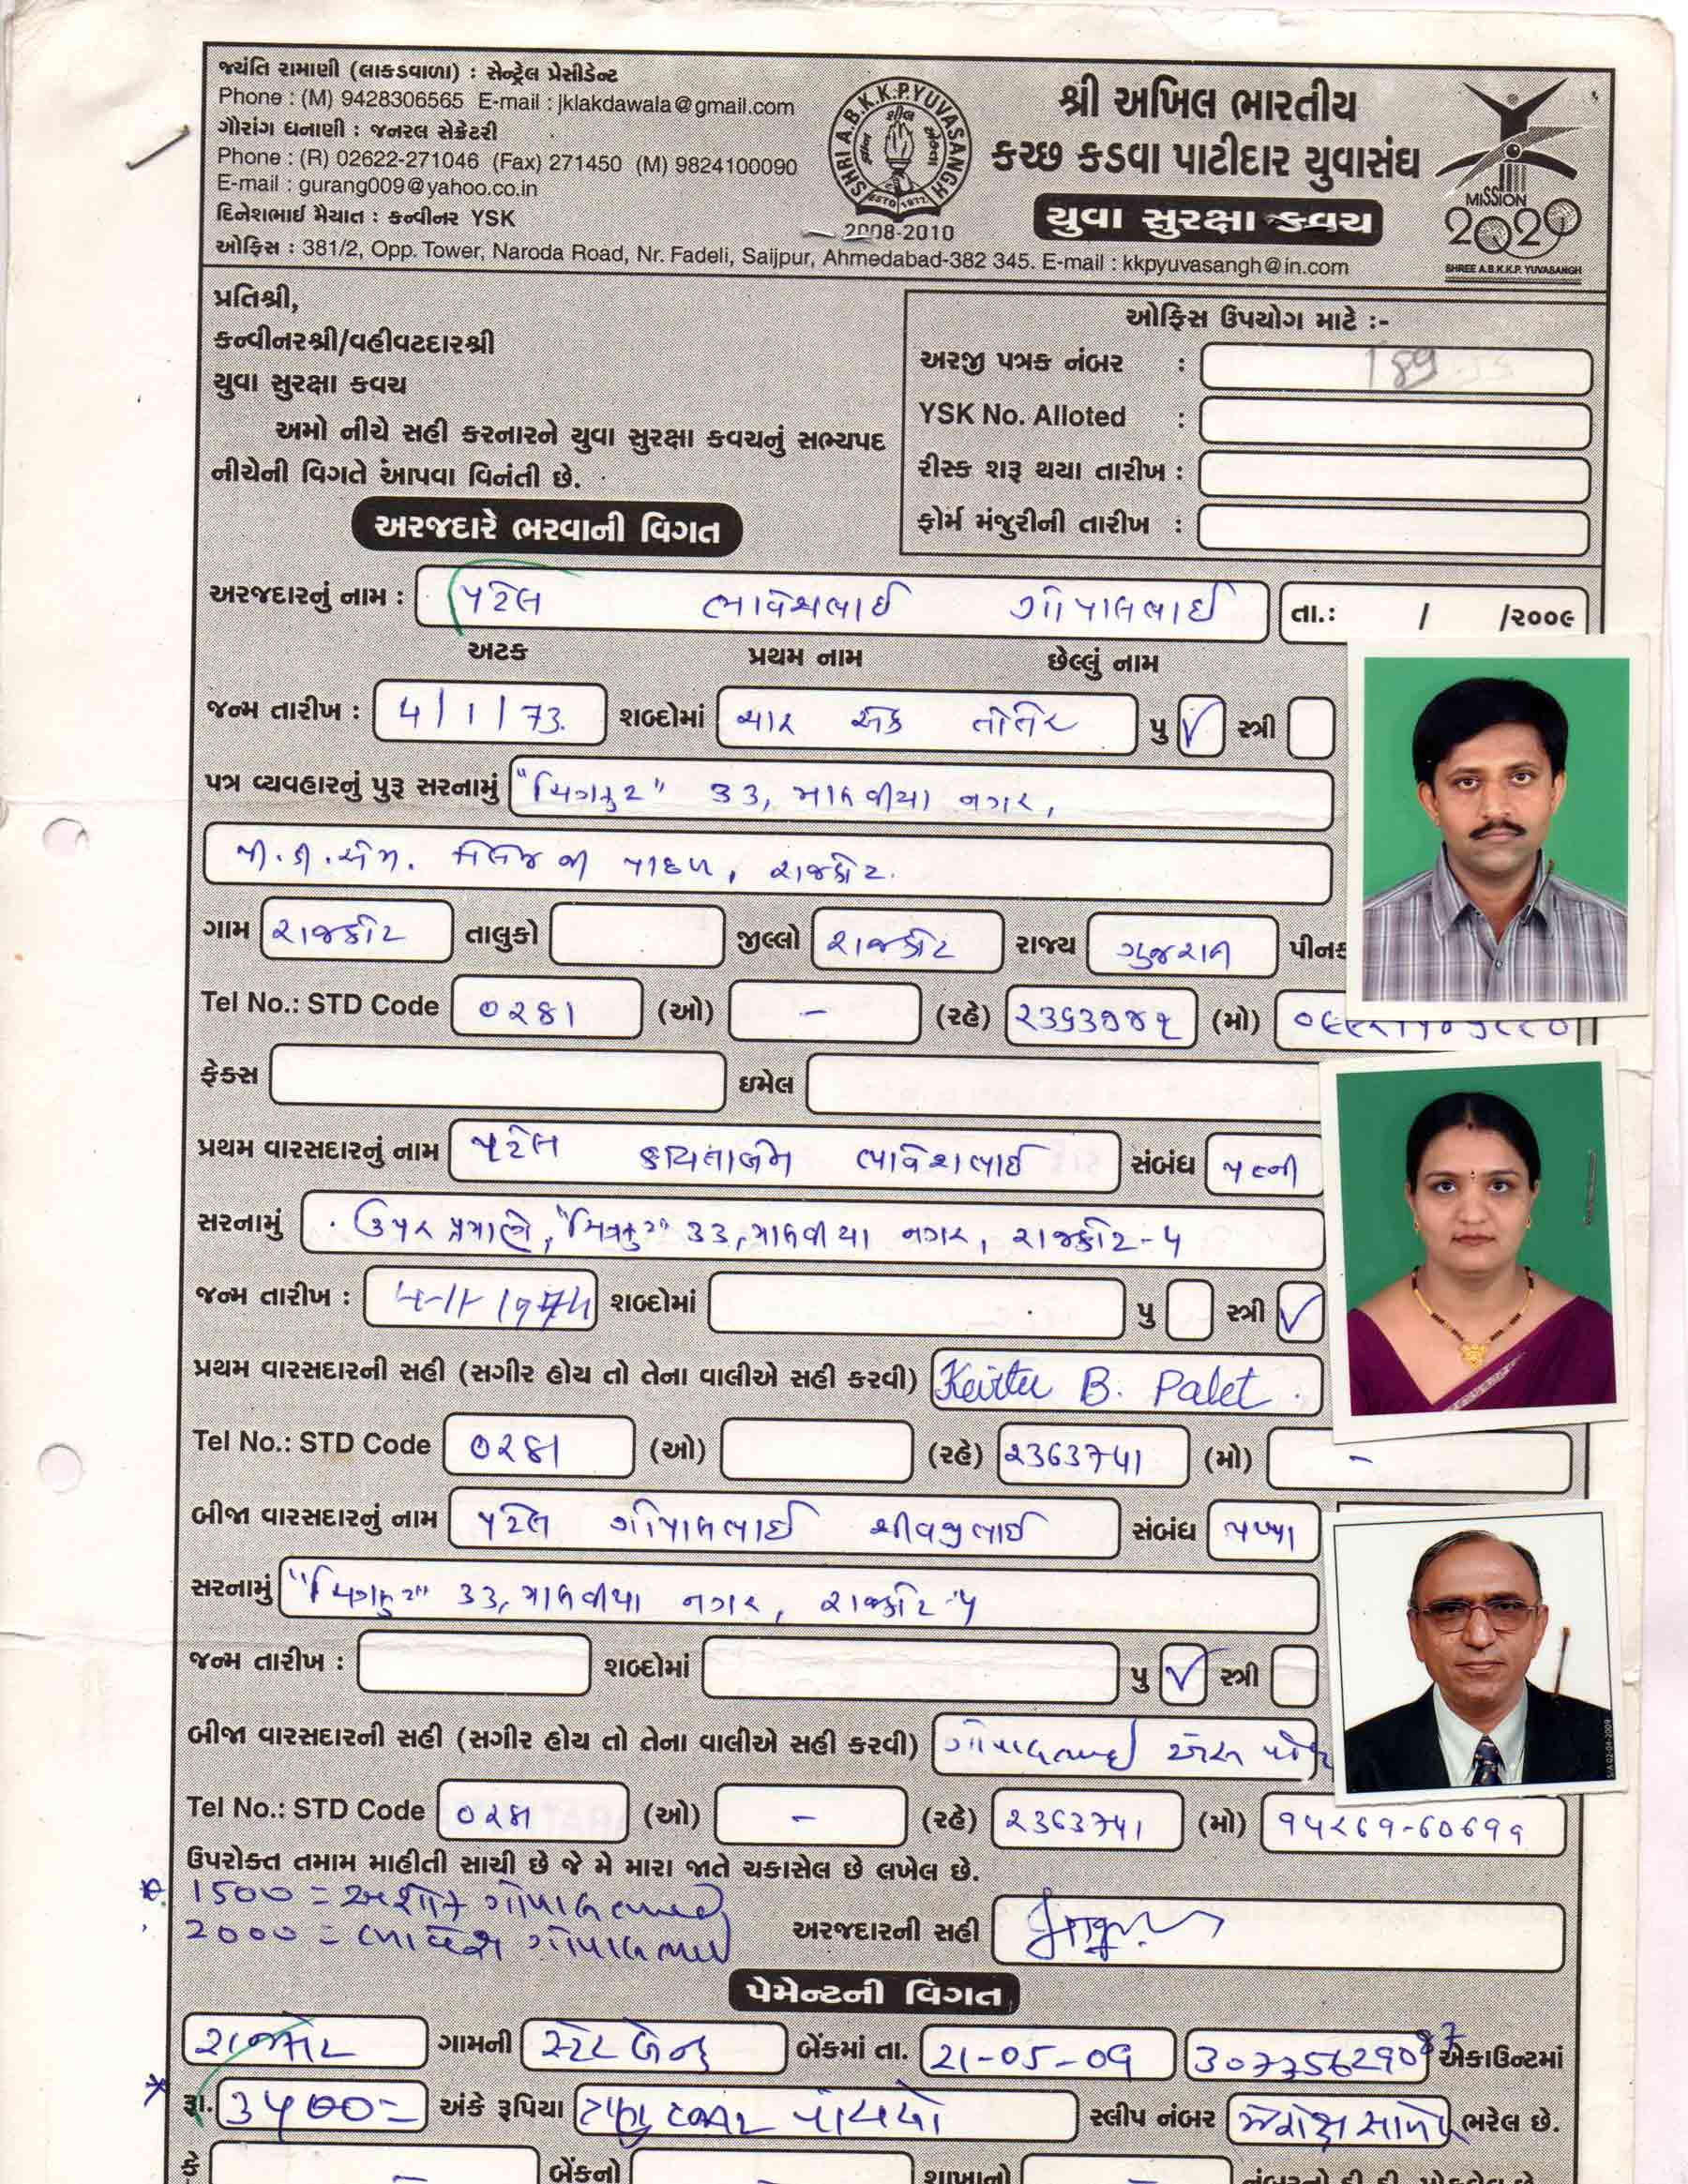 જયંતિ રામાણી (લાકડાવાળા) : સેન્ટ્રેલ પ્રેસીડેન્ટ
Phone : (M) 9428306565 E-mail : jklakdawala@gmail.com
ગૌરાંગ ધનાણી : જનરલ સેક્રેટરી
Phone : (R) 02622-271046 (Fax) 271450 (M) 9824100090
E-mail : gurang009@yahoo.co.in
દિનેશભાઈ મૈયાત : કન્વીનર YSK
ઓફિસ : 381/2, Opp. Tower, Naroda Road, Nr. Fadeli, Saijpur, Ahmedabad-382 345. E-mail : kkpyuvasangh@in.com
SHRI A.B.K.K.P. YUVASANGH
2008-2010
શ્રી અખિલ ભારતીય
કચ્છ કડવા પાટીદાર યુવાસંઘ
યુવા સુરક્ષા કવચ
MISSION
2020
SHREE A.B.K.K.P. YUVASANGH
પ્રતિશ્રી,
કન્વીનરશ્રી/વહીવટદારશ્રી
યુવા સુરક્ષા કવચ
અમો નીચે સહી કરનારને યુવા સુરક્ષા કવચનું સભ્યપદ
નીચેની વિગતે આપવા વિનંતી છે.
ઓફિસ ઉપયોગ માટે :-
અરજી પત્રક નંબર : 189
YSK No. Alloted :
રીસ્ક શરૂ થયા તારીખ :
ફોર્મ મંજુરીની તારીખ :
અરજદારે ભરવાની વિગત
અરજદારનું નામ : પટેલ ભાવેશભાઈ ગોપાલભાઈ તા.: / /૨૦૦૯
અટક પ્રથમ નામ છેલ્લું નામ
જન્મ તારીખ : 4/1/73. શબ્દોમાં ચાર એક તોતેર પુ ✓ સ્ત્રી
પત્ર વ્યવહારનું પુરૂ સરનામું "ચિત્રકુટ" 33, માલવીયા નગર,
પી.ડી.એમ. કોલેજ ની પાછળ, રાજકોટ.
ગામ રાજકોટ તાલુકો જીલ્લો રાજકોટ રાજ્ય ગુજરાત પીનક
Tel No.: STD Code ૦૨૮૧ (ઓ) - (રહે) ૨૩૬૩૭૪૧ (મો)
ફેક્સ ઇમેલ
પ્રથમ વારસદારનું નામ પટેલ ભાવેશભાઈ સંબંધ પત્ની
સરનામું ઉપર પ્રમાણે, "ચિત્રકુટ" 33, માલવીયા નગર, રાજકોટ-૫
જન્મ તારીખ : શબ્દોમાં પુ સ્ત્રી ✓
પ્રથમ વારસદારની સહી (સગીર હોય તો તેના વાલીએ સહી કરવી) B. Patel
Tel No.: STD Code ૦૨૮૧ (ઓ) (રહે) ૨૩૬૩૭૪૧ (મો) -
બીજા વારસદારનું નામ પટેલ ગોપાલભાઈ શીવજીભાઈ સંબંધ પપ્પા
સરનામું "ચિત્રકુટ" 33, માલવીયા નગર, રાજકોટ-૫
જન્મ તારીખ : શબ્દોમાં પુ ✓ સ્ત્રી
બીજા વારસદારની સહી (સગીર હોય તો તેના વાલીએ સહી કરવી) ગોપાલભાઈ એસ
Tel No.: STD Code ૦૨૮૧ (ઓ) - (રહે) ૨૩૬૩૭૪૧ (મો)
ઉપરોક્ત તમામ માહીતી સાચી છે જે મે મારા જાતે ચકાસેલ છે લખેલ છે.
1500 = ગોપાલભાઈ
2000 = ભાવેશ ગોપાલભાઈ
અરજદારની સહી
પેમેન્ટની વિગત
રાજકોટ ગામની સ્ટેટ બેન્ક બેંકમાં તા. 21-05-09 એકાઉન્ટમાં
રૂા. 3500= અંકે રૂપિયા પાંચસો સ્લીપ નંબર ભરેલ છે.
કે બેંકનો શાખાનો